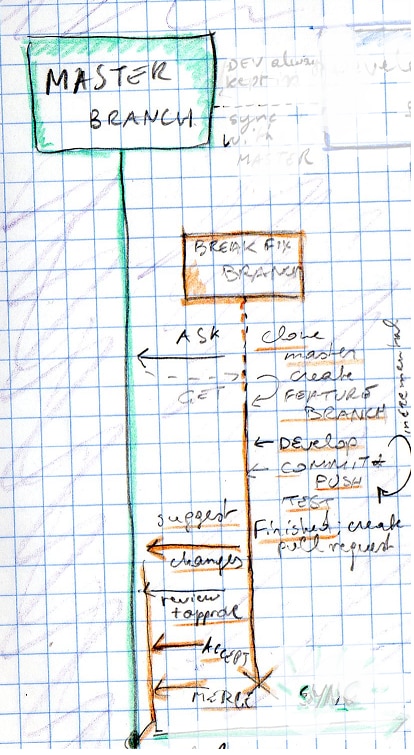 MASTER
BRANCH
DEV always
kept in
sync
with
MASTER
BREAK FIX
BRANCH
ASK
GET
clone
master
create
FEATURE
BRANCH
incremental
DEVELOP
COMMIT &
PUSH
TEST
Finished: create
pull request
suggest
changes
review
+ approve
ACCEPT
MERGE
SYNC